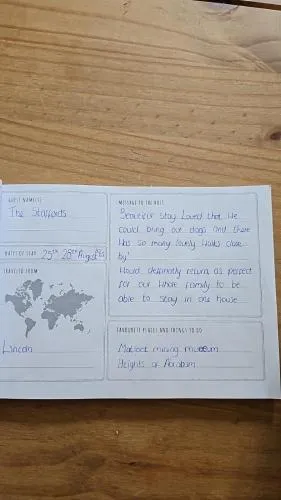 GUEST NAME(S)
The Staffords
DATES OF STAY 25th 28th August
TRAVELLED FROM
Lincoln
MESSAGE TO THE HOST
Beautiful stay Loved that We
could bring our dogs and there
Was so many lovely Walks close
by!
Would definatly return as perfect
for our Whole family to be
able to stay in one house
FAVOURITE PLACES AND THINGS TO DO
Matlock mining museum
Heights of Abraham